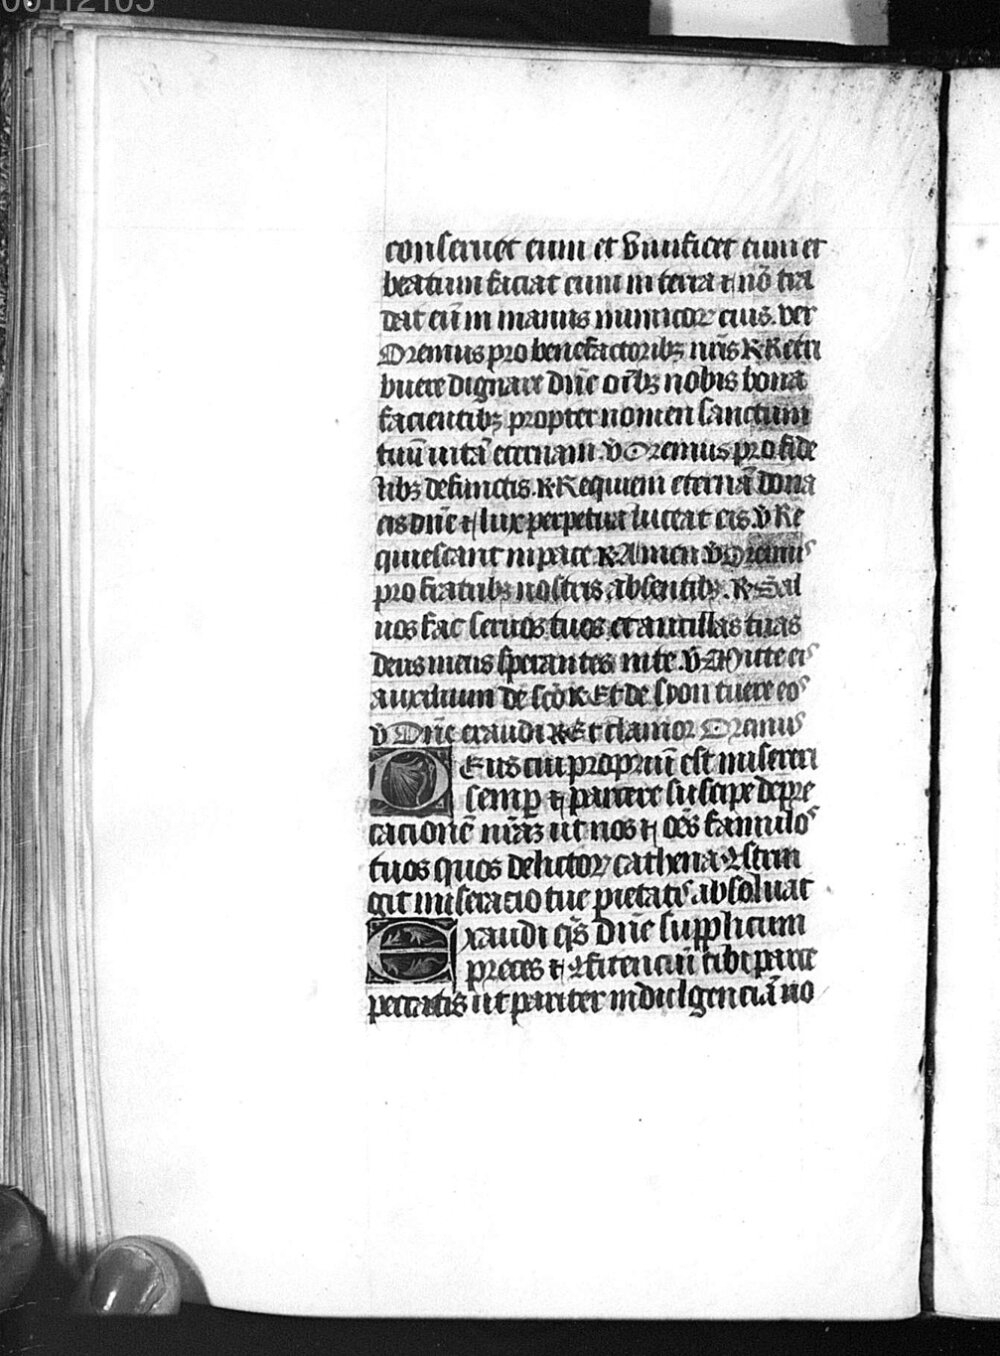 00112105
conseruet eum et viuificet eum et
beatum faciat eum in terra ⁊ nō tra
dat eū in manus inimicoꝝ eius. ver
Oremus pro benefactoribꝫ nr̄is ℟ Retri
buere dignare dn̄e oībꝫ nobis bona
facientibꝫ propter nomen sanctum
tuū uitā eternam. ℣ Oremus pro fide
libꝫ defunctis. ℟ Requiem eternā dona
eis dn̄e ⁊ lux perpetua luceat eis. ℣ Re
quiescant in pace ℟ Amen ℣ Oremꝰ
pro fratribꝫ nostris absentibꝫ. ℟ Sal
uos fac seruos tuos et ancillas tuas
deus meus sperantes in te. ℣ Mitte eis
auxilium de sc̄o ℟ Et de syon tuere eos
℣ Dn̄e exaudi ℟ Et clamor Oremus
Deus cui propriū est misereri
semꝑ ⁊ parcere suscipe depre
cationē nr̄aꝫ ut nos ⁊ oēs famulos
tuos quos delictoꝝ cathena ꝯstrin
git miseracio tue pietatis absoluat
Exaudi qs̄ dn̄e supplicum
preces ⁊ ꝯfitenciū tibi parce
peccatis ut pariter indulgenciā no